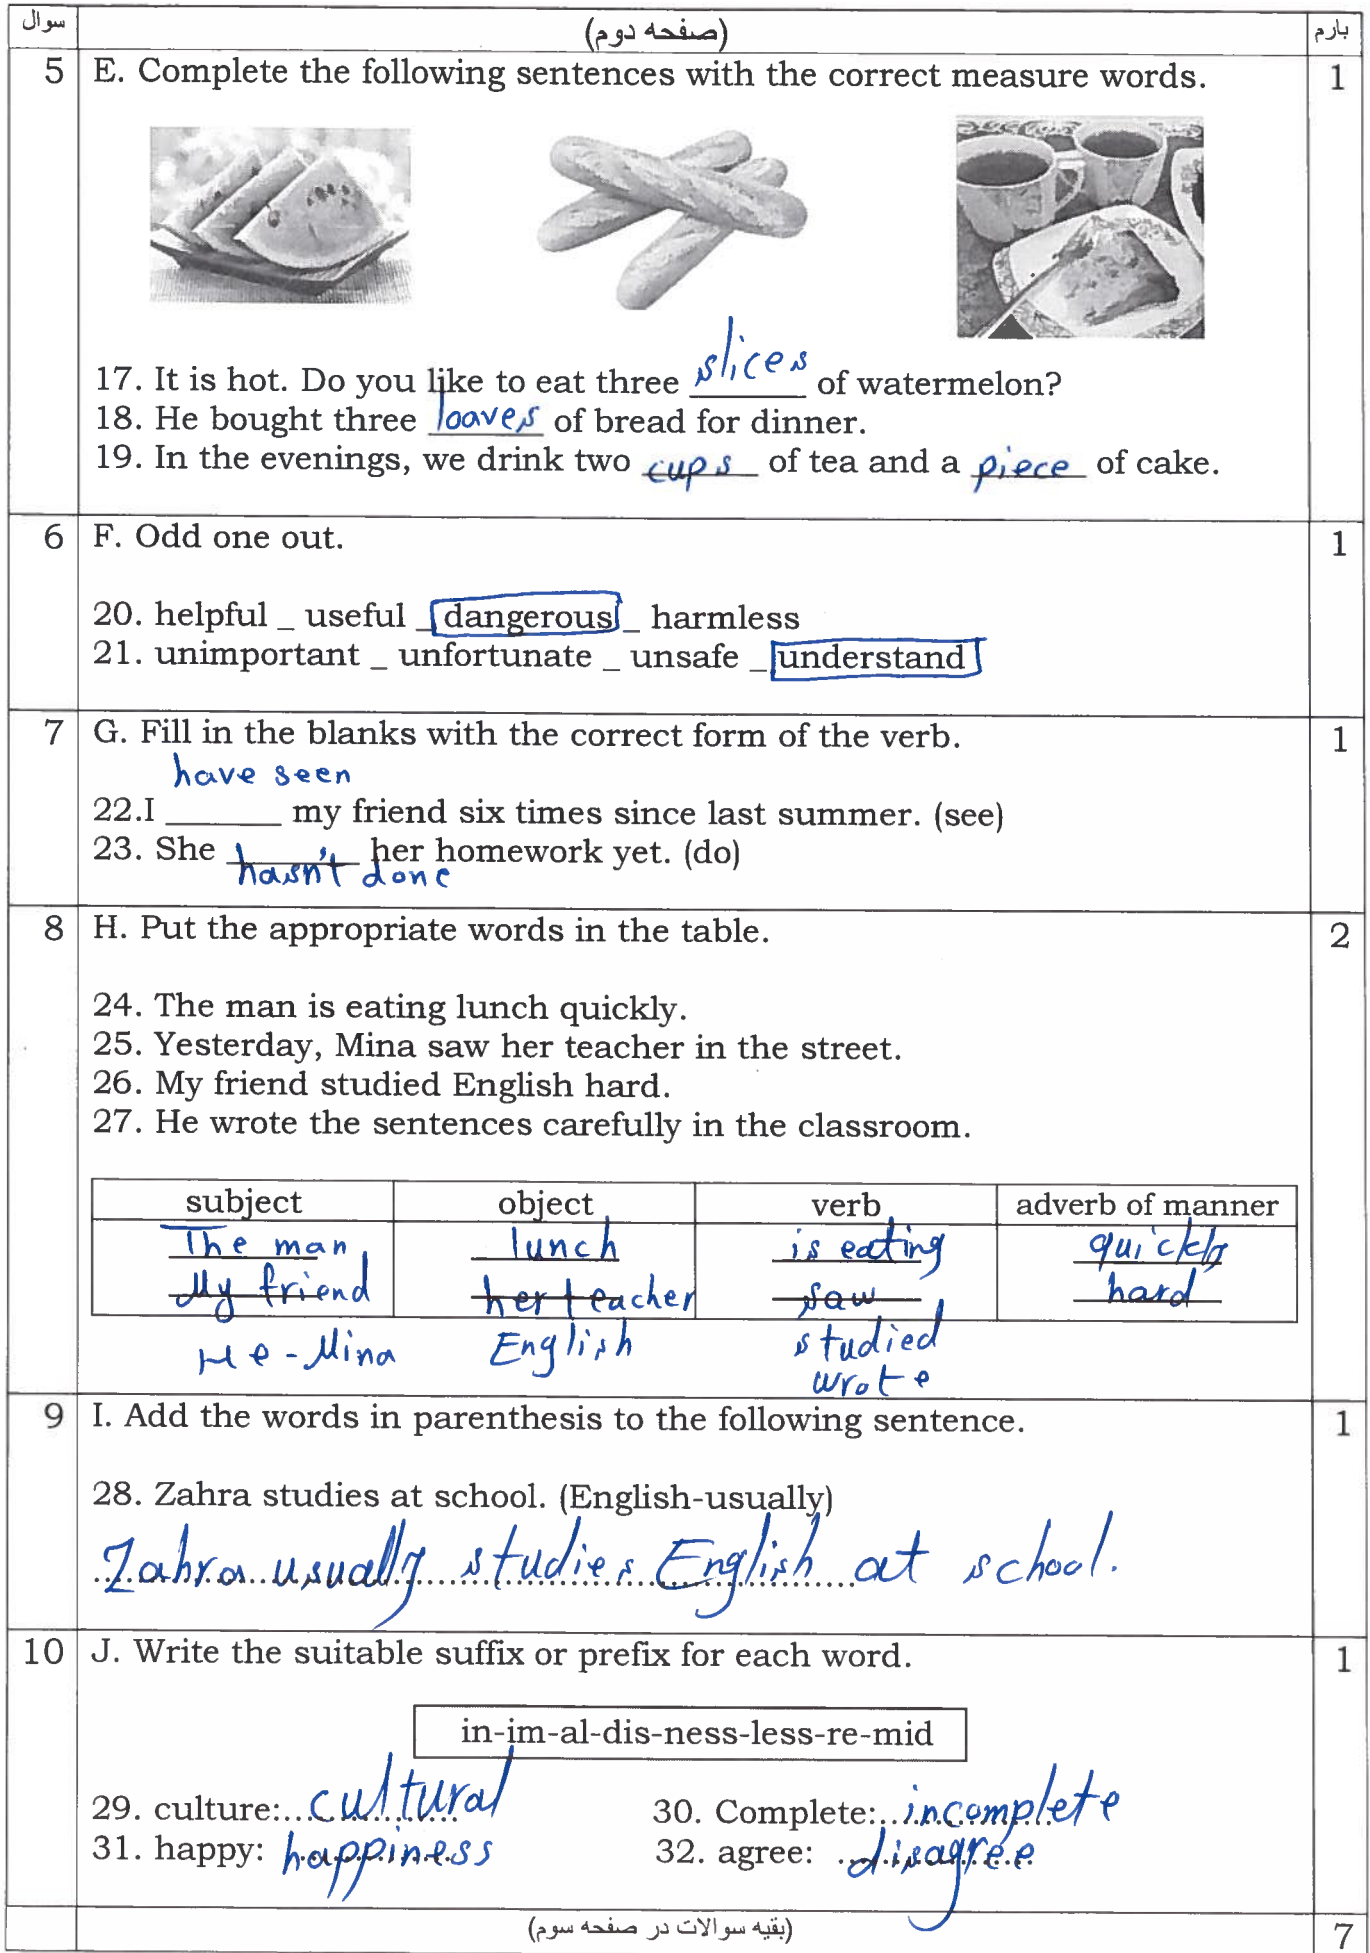 سوال (صفحه دوم) بارم
5 E. Complete the following sentences with the correct measure words. 1
17. It is hot. Do you like to eat three slices of watermelon?
18. He bought three loaves of bread for dinner.
19. In the evenings, we drink two cups of tea and a piece of cake.
6 F. Odd one out. 1
20. helpful _ useful _ dangerous _ harmless
21. unimportant _ unfortunate _ unsafe _ understand
7 G. Fill in the blanks with the correct form of the verb. 1
have seen
22.I ______ my friend six times since last summer. (see)
23. She ______ her homework yet. (do)
hasn't done
8 H. Put the appropriate words in the table. 2
24. The man is eating lunch quickly.
25. Yesterday, Mina saw her teacher in the street.
26. My friend studied English hard.
27. He wrote the sentences carefully in the classroom.
subject object verb adverb of manner
The man lunch is eating quickly
My friend her teacher saw hard
He - Mina English studied
wrote
9 I. Add the words in parenthesis to the following sentence. 1
28. Zahra studies at school. (English-usually)
Zahra usually studies English at school.
10 J. Write the suitable suffix or prefix for each word. 1
in-im-al-dis-ness-less-re-mid
29. culture: cultural 30. Complete: incomplete
31. happy: happiness 32. agree: disagree
(بقیه سوالات در صفحه سوم) 7